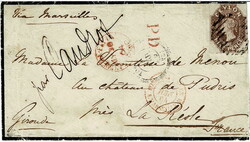 Via Marseilles
P.D.
par Caudrot
Madame la Vicomtesse de Menou
Au Château de Pudris
Près La Réole
Gironde
France